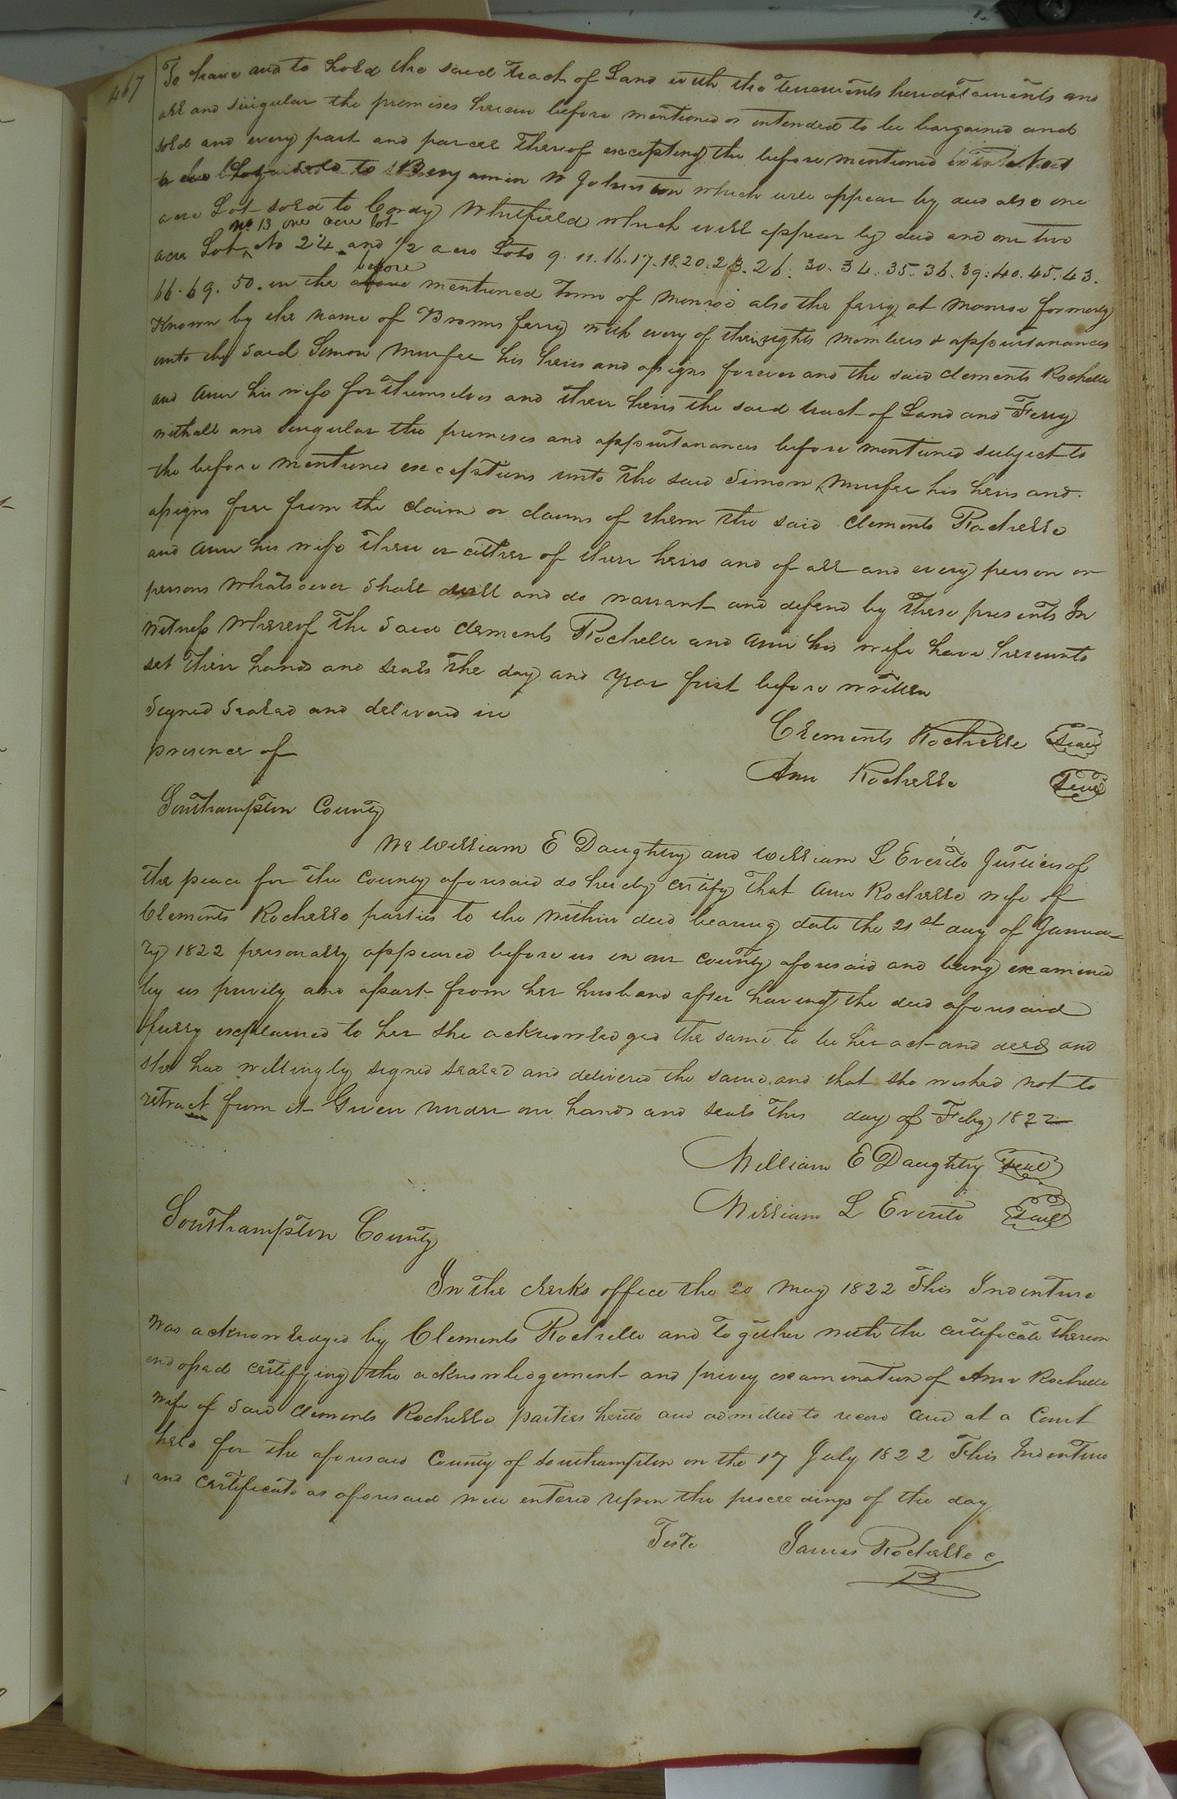 467
To have and to hold the said tract of Land with the tenements hereditaments and
all and singular the premises herein before mentioned or intended to be bargained and
sold and every part and parcel thereof excepting the before mentioned
sold to Benjamin W Johnston which will appear by deed also one
acre Lot sold to Cordy Whitfield which will appear by deed and one two
No 13 one acre lot
acre Lot No 24 and 1/2 acre Lots 9. 11. 16. 17. 18. 20. 23. 26. 30. 34. 35. 36. 39. 40. 45. 43.
before
66. 69. 50. in the above mentioned Town of Monroe also the ferry at Monroe formerly
Known by the name of Browns ferry with every of their rights members & appurtanances
unto the said Simon Murfee his heirs and assigns forever and the said Clements Rochelle
and Ann his wife for themselves and their heirs the said tract of Land and Ferry
withall and singular the premises and appurtanances before mentioned subject to
the before mentioned exceptions unto the said Simon Murfee his heirs and
assigns free from the claim or claims of them the said Clements Rochelle
and Ann his wife their or either of their heirs and of all and every person or
persons whatsoever shall will and do warrant and defend by these presents In
witness whereof the said Clements Rochelle and Ann his wife have hereunto
set their hands and seals the day and year first before written
Signed Sealed and delivered in
presence of
Clements Rochelle Seal
Ann Rochelle Seal
Southampton County
We William E Daughtry and William L Everitt Justices of
the peace for the County aforesaid do hereby certify that Ann Rochelle wife of
Clements Rochelle parties to the within deed bearing date the 21st day of Janua-
ry 1822 personally appeared before us in our County aforesaid and being examined
by us privily and apart from her husband after having the deed aforesaid
fully explained to her she acknowledged the same to be her act and deed and
she had willingly signed sealed and delivered the same and that she wished not to
retract from it Given under our hands and seals this day of Feby 1822
William E Daughtry Seal
William L Everitt Seal
Southampton County
In the Clerks office the 20 May 1822 This Indenture
was acknowledged by Clements Rochelle and together with the certificate thereon
endorsed certifying the acknowledgement and privey examination of Ann Rochelle
wife of said Clements Rochelle parties hereto and admitted to record And at a Court
held for the aforesaid County of Southampton on the 17 July 1822 This Indenture
and Certificate as aforesaid were entered upon the proceedings of the day
Teste James Rochelle C